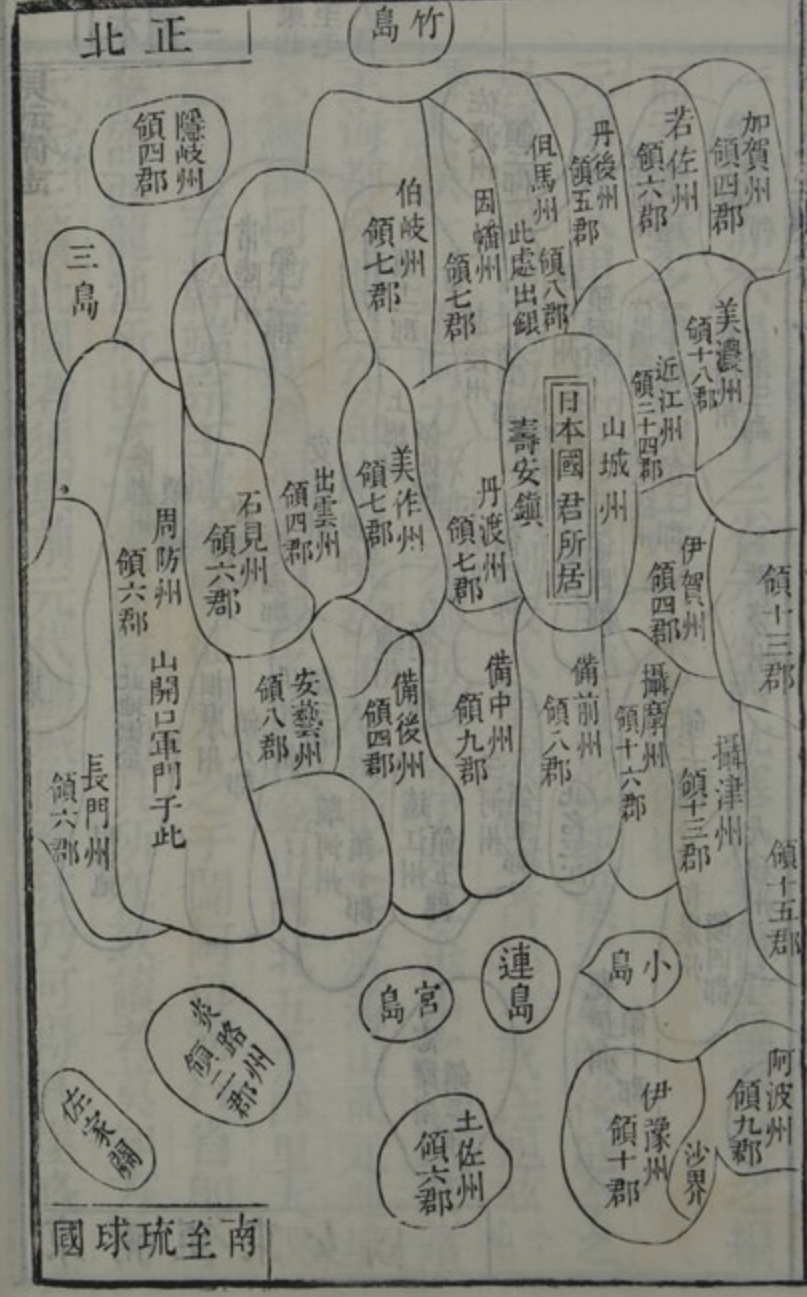 正北
竹島
加賀州
領四郡
若佐州
領六郡
丹後州
領五郡
但馬州 領八郡
此處出銀
因幡州
領七郡
伯岐州
領七郡
隱岐州
領四郡
三島
美濃州
領十八郡
近江州
領二十四郡
山城州
日本國君所居
壽安鎮
丹渡州
領七郡
美作州
領七郡
出雲州
領四郡
石見州
領六郡
周防州
領六郡
山開口軍門于此
長門州
領六郡
領十三郡
伊賀州
領四郡
攝津州
領十三郡
攝摩州
領十六郡
備前州
領八郡
備中州
領九郡
備後州
領四郡
安藝州
領八郡
領十五郡
小島
連島
宮島
炎路州
領二郡
佐家關
阿波州
領九郡
沙界
伊豫州
領十郡
土佐州
領六郡
南至琉球國